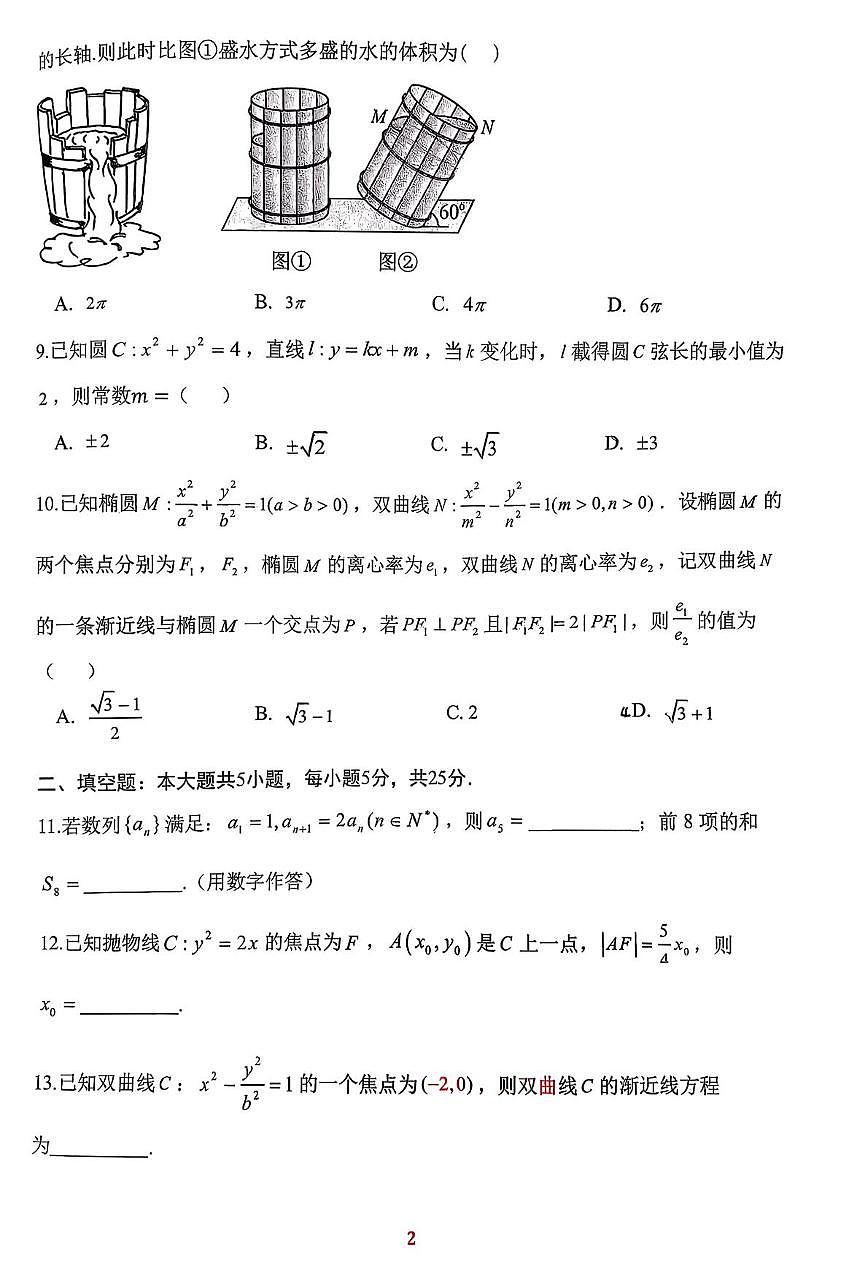 的长轴.则此时比图①盛水方式多盛的水的体积为( )
M
N
60°
图① 图②
A. 2π B. 3π C. 4π D. 6π
9.已知圆C:x²+y²=4，直线l:y=kx+m，当k变化时，l截得圆C弦长的最小值为
2，则常数m=( )
A. ±2 B. ±√2 C. ±√3 D. ±3
10.已知椭圆M:x²/a²+y²/b²=1(a>b>0)，双曲线N:x²/m²-y²/n²=1(m>0,n>0). 设椭圆M的
两个焦点分别为F₁，F₂，椭圆M的离心率为e₁，双曲线N的离心率为e₂，记双曲线N
的一条渐近线与椭圆M一个交点为P，若PF₁⊥PF₂且|F₁F₂|=2|PF₁|，则e₁/e₂的值为
( )
A. (√3-1)/2 B. √3-1 C. 2 D. √3+1
二、填空题：本大题共5小题，每小题5分，共25分.
11.若数列{aₙ}满足：a₁=1,aₙ₊₁=2aₙ(n∈N*)，则a₅=________；前8项的和
S₈=________.（用数字作答）
12.已知抛物线C:y²=2x的焦点为F，A(x₀,y₀)是C上一点，|AF|=5/4x₀，则
x₀=________.
13.已知双曲线C：x²-y²/b²=1的一个焦点为(-2,0)，则双曲线C的渐近线方程
为________.
2